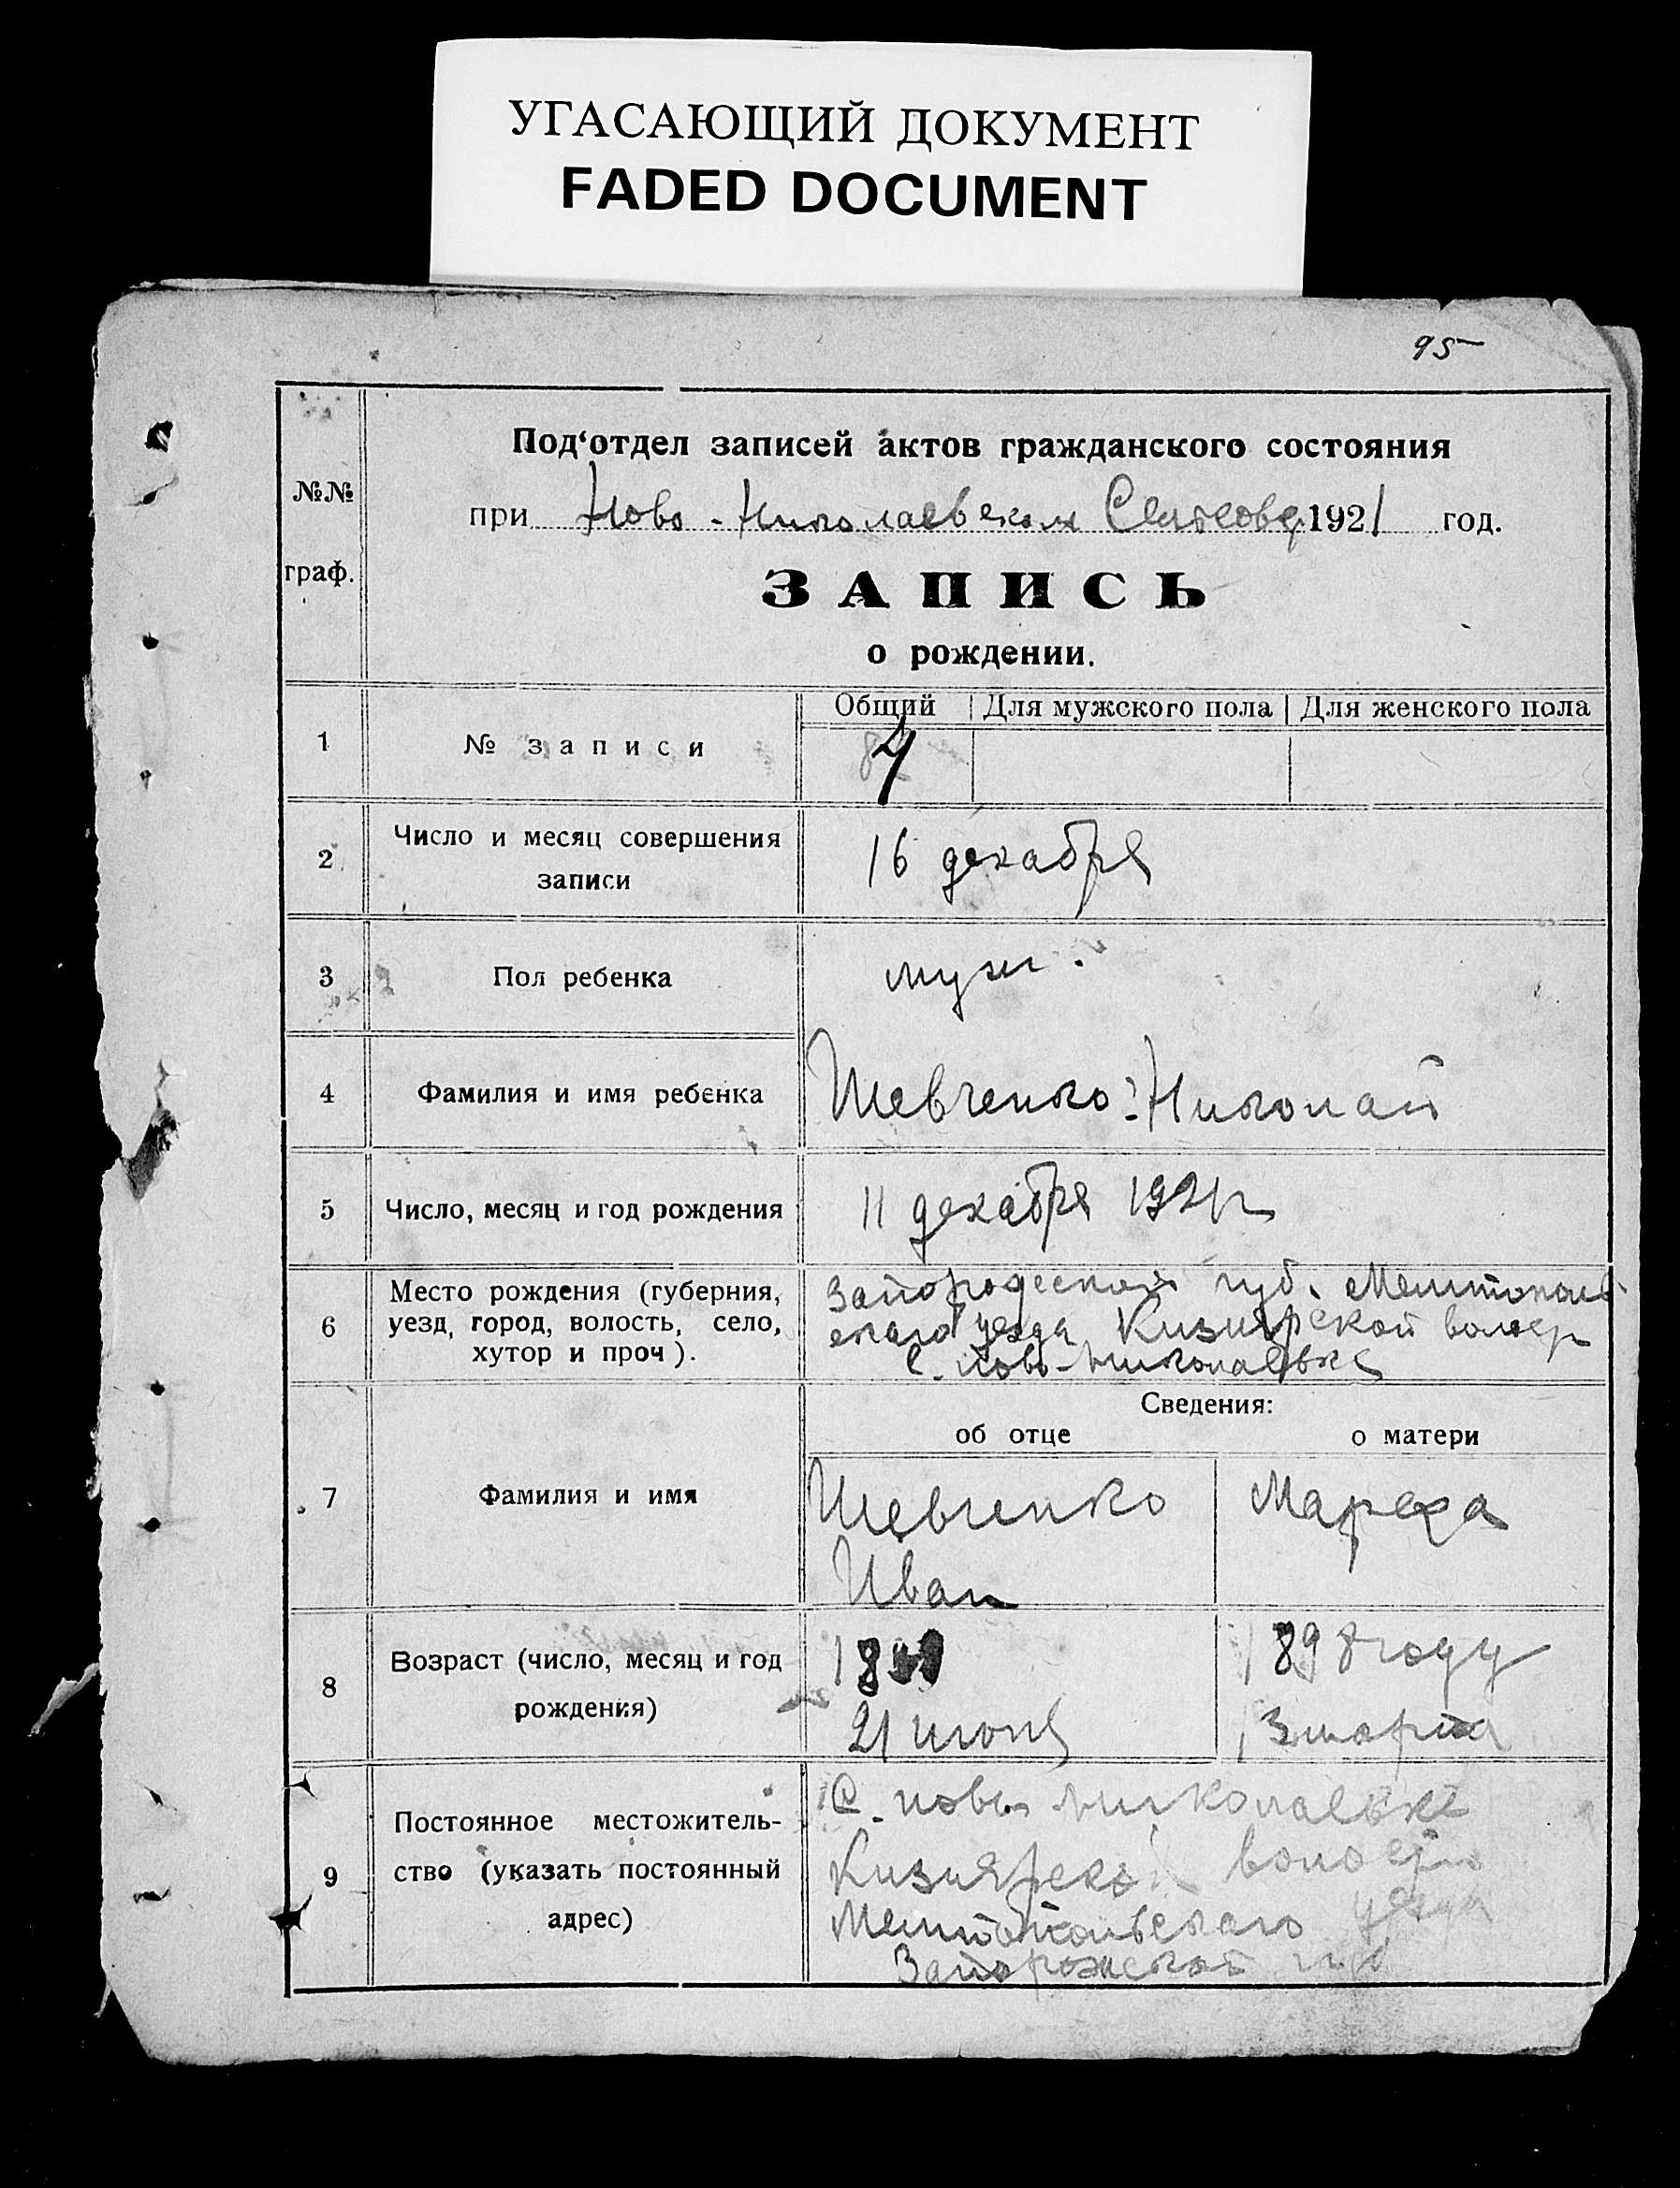 УГАСАЮЩИЙ ДОКУМЕНТ
FADED DOCUMENT
95
№№
граф.
Под‘отдел записей актов гражданского состояния
при Ново-Николаевском 1921 год.
ЗАПИСЬ
о рождении.
Общий Для мужского пола Для женского пола
1 № записи 4
2 Число и месяц совершения
записи
16 декабря
3 Пол ребенка муж.
4 Фамилия и имя ребенка Шевченко Николай
5 Число, месяц и год рождения 11 декабря 1921 г
6 Место рождения (губерния,
уезд, город, волость, село,
хутор и проч).
губ. Мелитополь
скаго уезда Кизиярской волос
с. Ново-Николаевке
Сведения:
об отце о матери
7 Фамилия и имя
Шевченко
Иван
8 Возраст (число, месяц и год
рождения)
21 июня
1898 году
марта
9 Постоянное местожитель-
ство (указать постоянный
адрес)
С. Николаевке
Кизиярской
Мелитопольскаго уезда
Запорожской губ